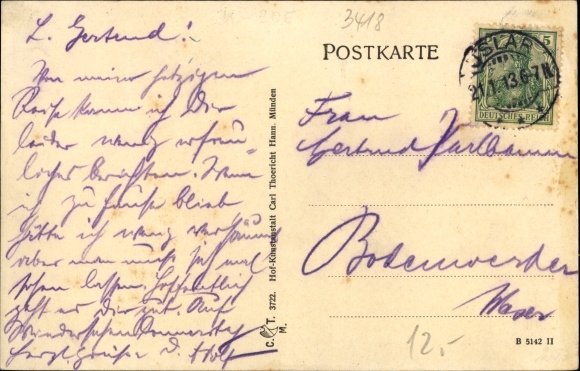 3418
L. Gertrud!
Von meiner jetzigen
Reise kann ich Dir
leider wenig erfreu-
liches berichten. Wenn
ich zu Hause blieb
hätte ich wenig versäumt
aber man muß sich mal
sehen lassen. Hoffentlich
geht es Dir gut. Auf
Wiedersehen Donnerstag
herzl. Grüße D. Adolf
C. T. 3722. Hof-Kunstanstalt Carl Thoericht Hann. Münden
M.
POSTKARTE
USLAR
21.1.13.6-7N.
5
DEUTSCHES REICH
Frau
Gertrud
Bodenwerder
Weser
12,-
B 5142 II